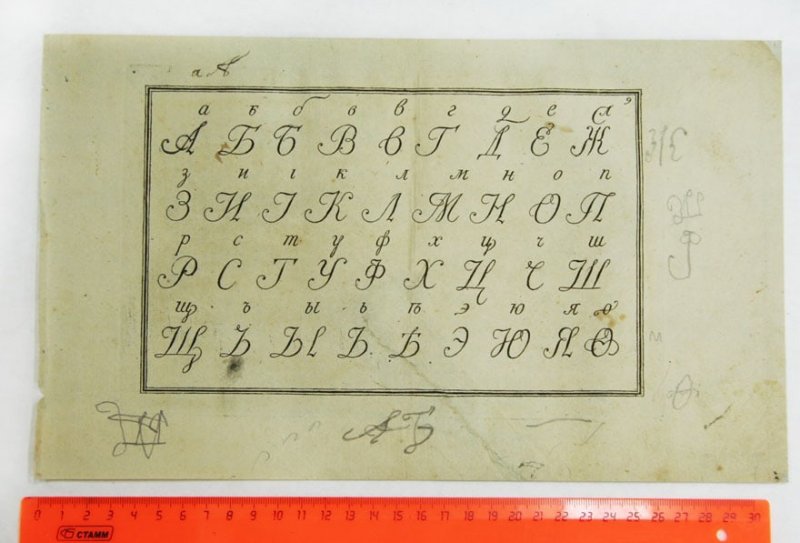 а А
а б б в в г д е ж э
А Б Б В В Г Д Е Ж
з и і к л м н о п
З И І К Л М Н О П
р с т у ф х ц ч ш
Р С Т У Ф Х Ц Ч Ш
щ ъ ы ь ѣ э ю я ѳ
Щ Ъ Ы Ь Ѣ Э Ю Я Ѳ
АБ
0 1 2 3 4 5 6 7 8 9 10 11 12 13 14 15 16 17 18 19 20 21 22 23 24 25 26 27 28 29 30
СТАММ